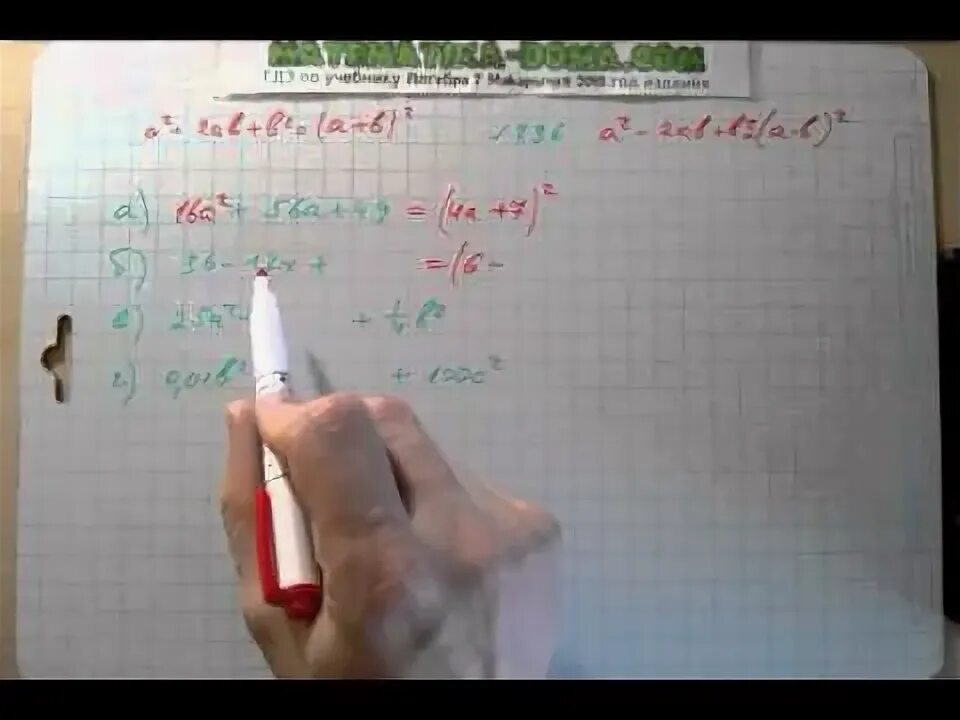 MATEMATIKA-DOMA.COM
ГДЗ по учебнику Алгебра 7 Макарычев год издания
a² + 2ab + b² = (a+b)² №836 a² - 2ab + b² = (a-b)²
а) 16a² + 56a + 49 = (4a + 7)²
б) 36 - 12x + = (6 -
в) 25a² + + ¼b²
г) 0,01b² + 100c²